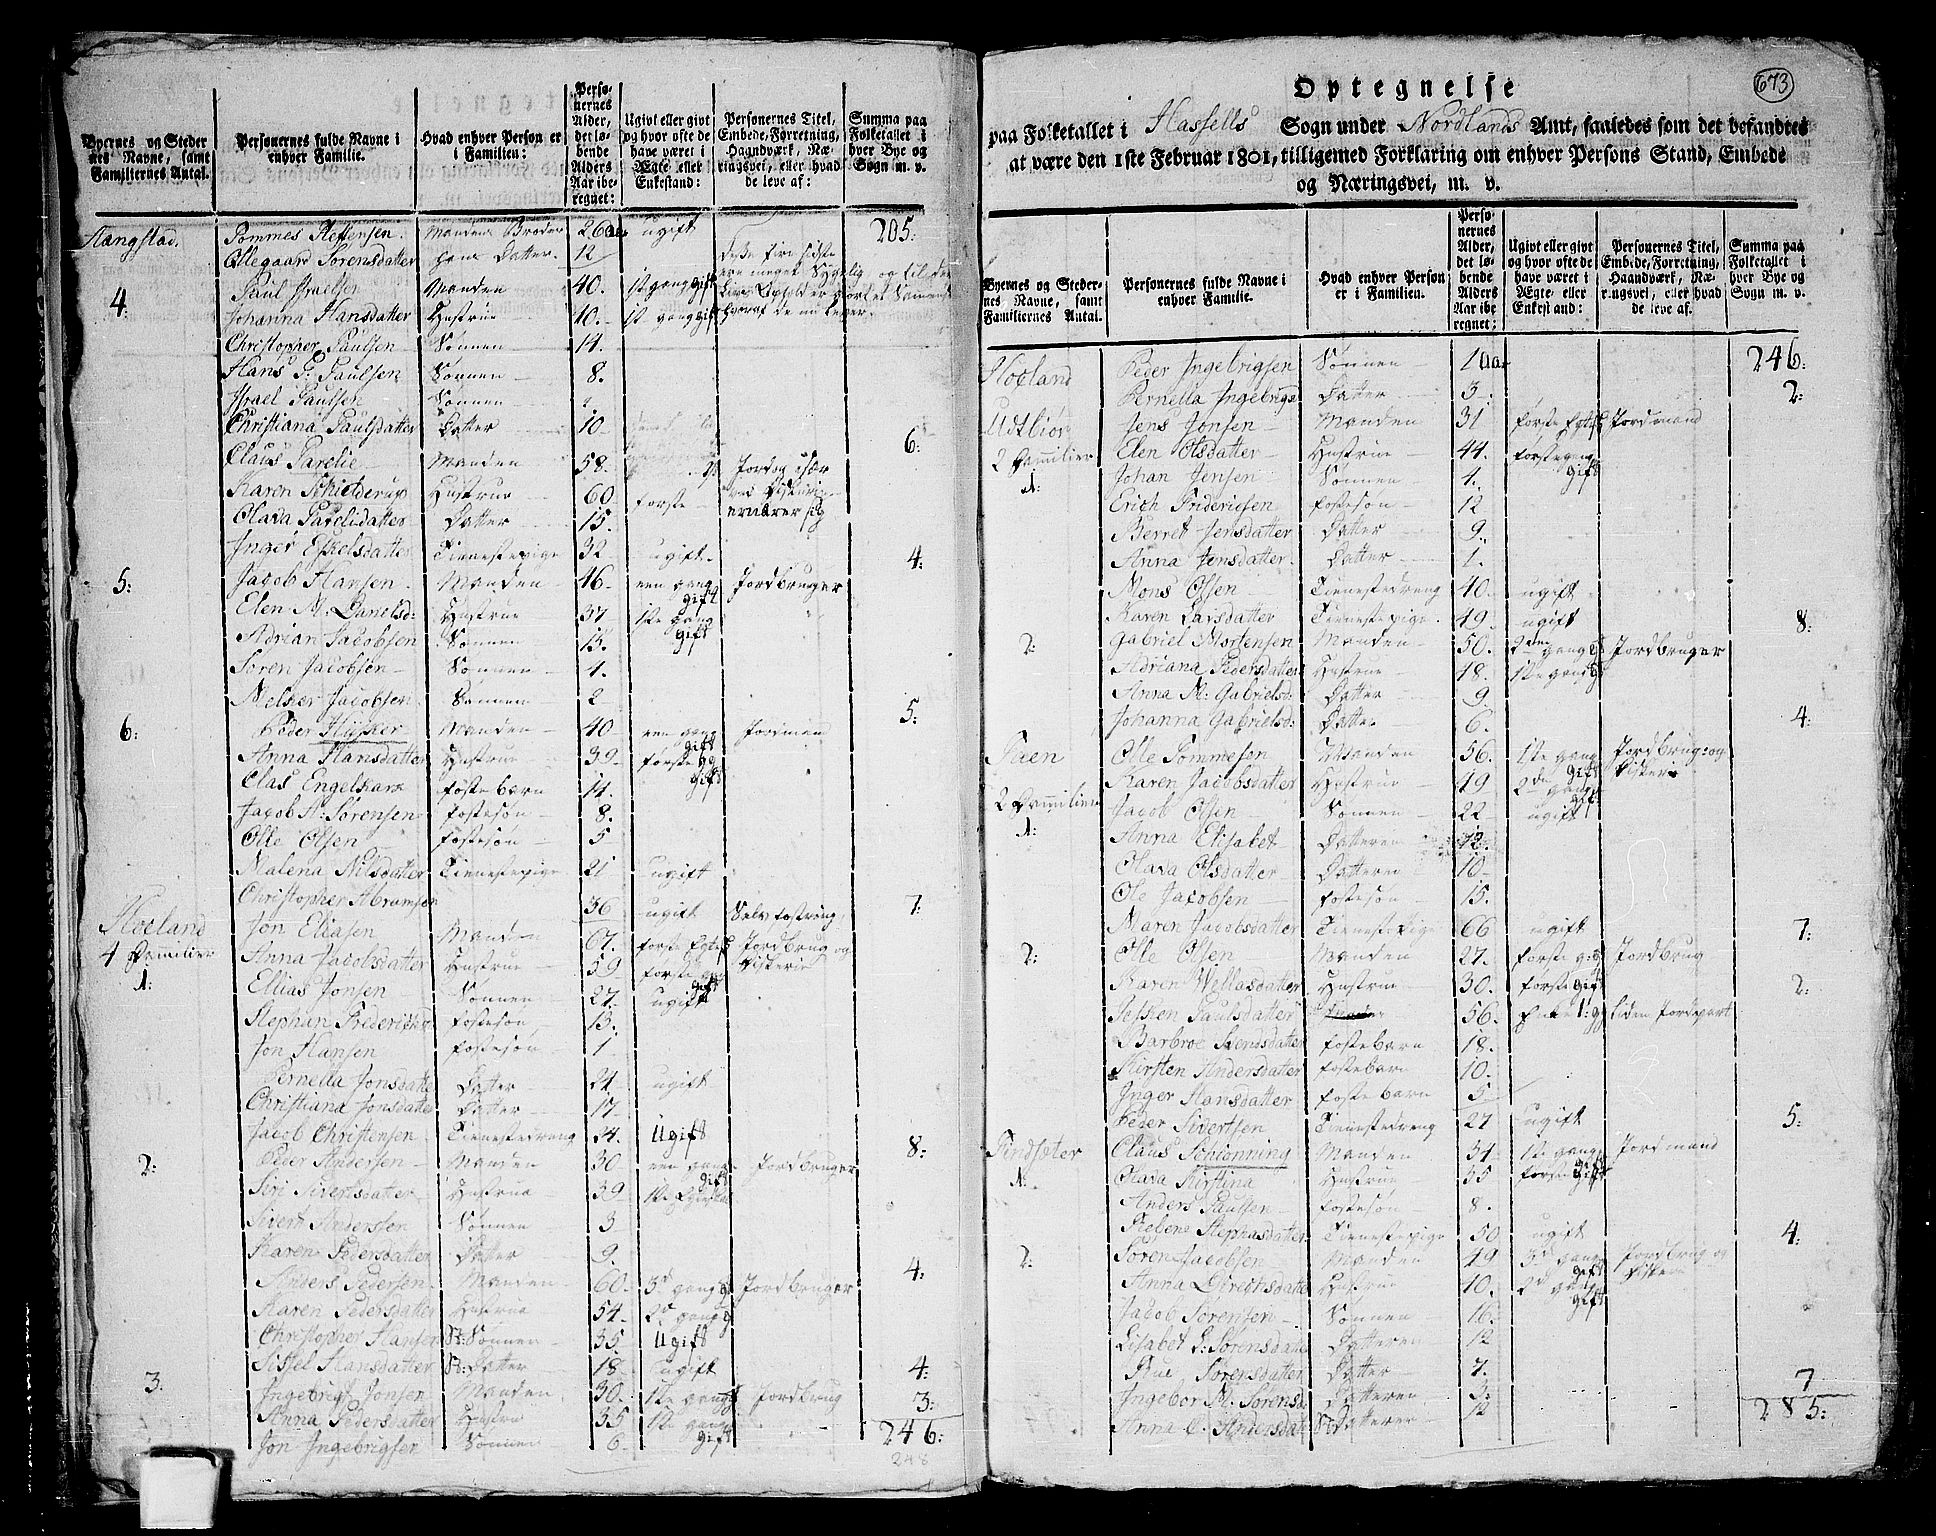 Byernes og Steder nes Navne, samt Familiernes Antal.
Personernes fulde Navne i enhver Familie.
Hvad enhver Person er i Familien:
Personernes Alder, det løbende Alders Aar iberegnet:
Ugivt eller givt og hvor ofte de have været i Ægte eller Enkestand:
Personernes Titel, Embede, Forretning, Haandværk, Næringsvei, eller hvad de leve af:
Summa paa Folketallet i hver Bye og Sogn m. v.
Hangstad. Tommes Steffensen. Mandens Broder 26 Aar ugift 205:
Ollegaard Sørensdatter hans Datter. 12
4 Paul Israelsen Manden 40. 1ste gang gift
Johanna Hansdatter Hustrue 40. 1st gang gift
Christopher Paulsen Sønnen 14.
Hans P. Paulsen Sønnen 8.
Israel Paulsen Sønnen
Christiana Paulsdatter Datter 10 6:
Claus Parelie Manden 58.
Karen Schielderup Hustrue 60 første
Olava Parelidatter Datter 15. ernærer sig
Inger Eskelsdatter Tienestepige 32 ugift 4:
5: Jacob Hansen Manden 46 een gang gift Jordbruger
Elen M. Danielsd: Hustrue 37 1ste gang gift
Adrian Jacobsen Sønnen 15.
Søren Jacobsen Sønnen 4.
Melker Jacobsen Sønnen 2 5:
6: Peder Hysker Manden 40 een gang gift Jordmen
Anna Hansdatter Hustrue 39 første gg gift
Clas Engelskar Fostebarn 14.
Jacob H. Sørensen Fostesøn 8.
Olle Olsen Fostesøn 5
Malena Nilsdatter Tienestepige 21 ugift
Christopher Abramsen 36 ugift 7:
Hoeland Jon Eliasen Manden 67. første Egtesk Jordbrug og
4 Familier Anna Jacobsdatter Hustrue 59 første gg gift Fiskerie
1: Ellias Jonsen Sønnen 27. ugift
Stephan Frederichs Fostesøn 13.
Jon Hansen Fostesøn 1
Pernella Jonsdatte Datter 24 ugift
Christiana Jonsdatte Datter 17
Jacob Christensen Tienestedreng 34. Ugift 8:
2: Peder Andersen Manden 30 een gang gift Jordbruger
Siri Sivertsdatter Hustrue 39 1ste
Sivert Andersen Sønnen 3
Karen Pedersdatter Datter 9. 4:
Anders Pedersen Manden 60 3d gang g Jordbruger
Karen Pedersdatter Hustrue 54. 2d gang g
Christopher Hansen St: Sønnen 35. Ugift
Sissel Hansdatter St: Datter 18 ugift 4:
3. Ingebrigt Jonsen Manden 30. 1ste gang g Jordbrug 3:
Anna Pedersdatter Hustru 35 1ste gang gift
Jon Ingebrigsen Sønnen 6. 246:
248
673
Optegnelse
paa Folketallet i Hassells Sogn under Nordlands Amt, saaledes som det befandtes
at være den 1ste Februar 1801, tilligemed Forklaring om enhver Persons Stand, Embede
og Næringsvei, m. v.
Byernes og Stedernes Navne, samt Familiernes Antal.
Personernes fulde Navne i enhver Familie.
Hvad enhver Person er i Familien.
Personernes Alder, det løbende Alders Aar iberegnet:
Ugivt eller givt og hvor ofte de have været i Ægte- eller Enkestand:
Personernes Titel, Embede, Forretning, Haandværk, Næringsvei, eller hvad de leve af.
Summa paa Folketallet i hver Bye og Sogn m. v.
Hoeland Peder Ingebrigsen Sønnen 1 Aar 246:
Pernella Ingebrigs Datter 3 2:
Udtbiør Jens Jonsen Manden 31 første Egtesk Jordmand
2 Familier Elen Olsdatter Hustrue 44. første gang gift
1: Johan Jensen Sønnen 4.
Erich Friderichsen Fostesøn 12
Berret Jensdatter Datter 9.
Anna Jensdatter Datter 1.
Mons Olsen Tienestedreng 40. ugift
Karen Larsdatter Tienestepige. 49. ugift 8:
2: Gabriel Mortensen Manden 50. 2den gang g Jordbruger
Adriana Pedersdatter Hustrue 48. 1ste gang g
Anna M: Gabrielsd: Datter 9.
Johanna Gabrielsd: Datter 6. 4:
Faen Olle Tommesen Manden 56. 1ste gang gift Jordbrug: og
2 Familier Karen Jacobsdatter Hustrue 49 2de gang gift Fiskerie
Jacob Olsen Sønnen 22 ugift
1: Anna Elisabet Datteren 12.
Olava Olsdatter Datteren 10
Ole Jacobsen Fostesøn 15.
Maren Jacobsdatter Tienestepige 66 ugift 7:
2: Olle Olsen Manden 27. første g: g Jordbrug
Karen Wellasdatter Hustrue 30. første gift 2:
Paulsdatter 56. Enke 1: g liden Jordepart
Barbroe Svendsdatter Fostebarn 18.
Kirsten Andersdatter Fostebarn 10.
Inger Hansdatter Fostebarn 5.
Peder Sivertsen Tienestedreng 27 ugift 5:
Findsæter Claus Schiønning Manden 34 1ste gang gift Jordmand
1. Olava Kirstina Hustrue 35 første gift
Anders Paulsen Fostesøn 8.
Helene Stephasdatter Tienestepige 50 ugift 4:
2: Søren Jacobsen Manden 49 3d gang gift Jordbrug og
Anna Hustrue 40. 2d gang gift
Jacob Sørensen Sønnen 16.
Lisabet S: Sørensdatte Datteren 12
Sørensdatter Datter 7.
Ingebor M. Sørensd Datteren 3. 7
Anna C. Andersdat St: Datteren 12 285: